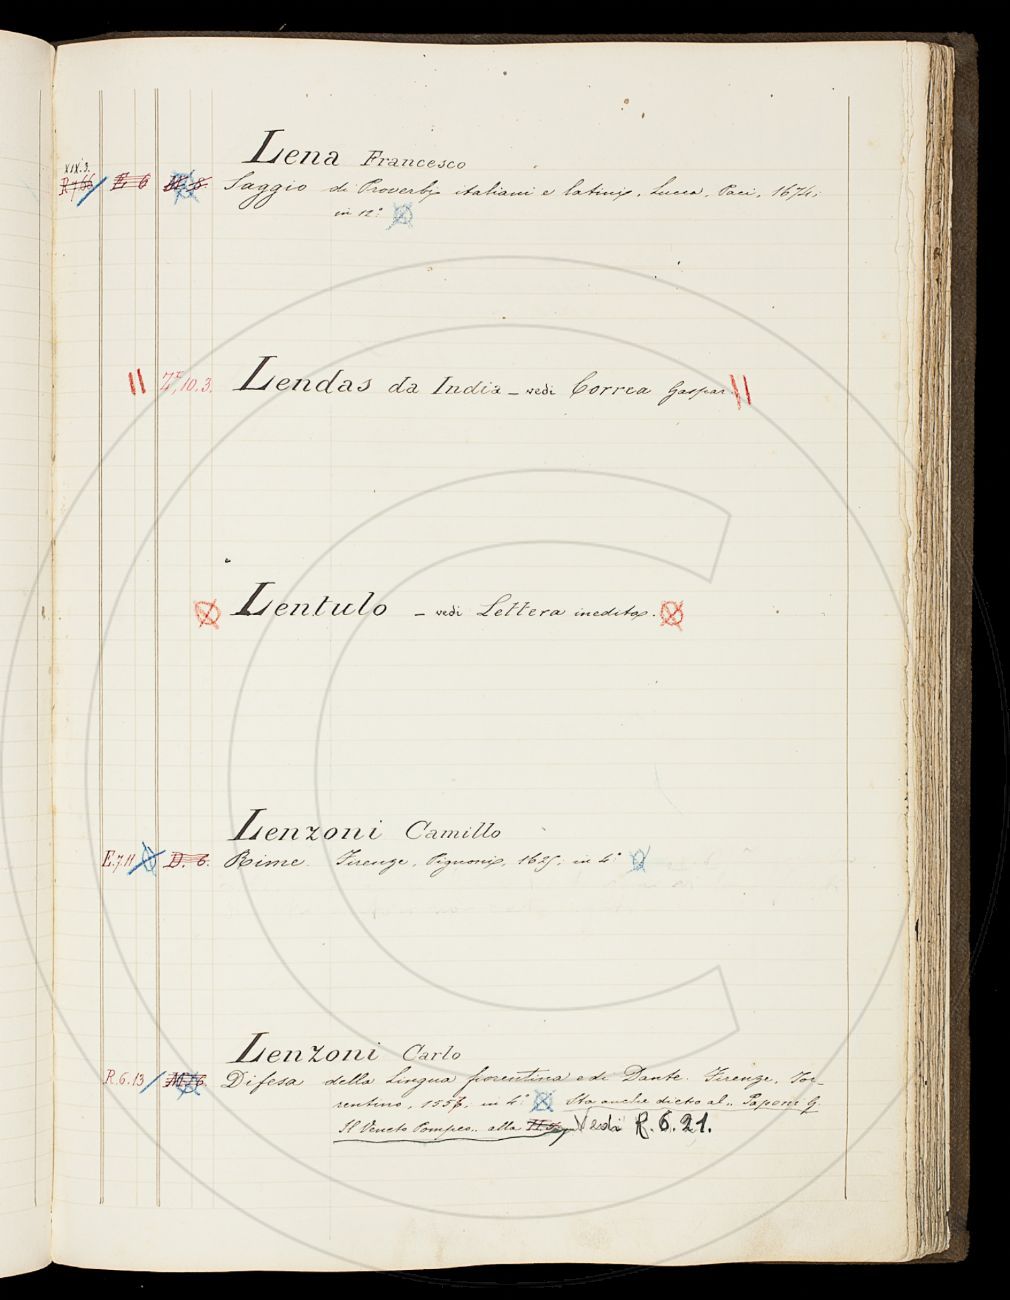 Lena Francesco
XIX.3.
E 6 Saggio di Proverbj italiani e latini, Lucca, Paci, 1674;
in 12.°
10.3. Lendas da India – vedi Correa Gaspar
Lentulo – vedi Lettera inedita.
Lenzoni Camillo
E.7.11 D. 6. Rime. Firenze, Pignoni, 1625; in 4.°
Lenzoni Carlo
R.6.13 Difesa della Lingua fiorentina e di Dante. Firenze, Tor-
rentino, in 4.° Sta anche dietro al „ Paponi G
Il Veneto Pompeo „ alla Vedi R. 6. 21.